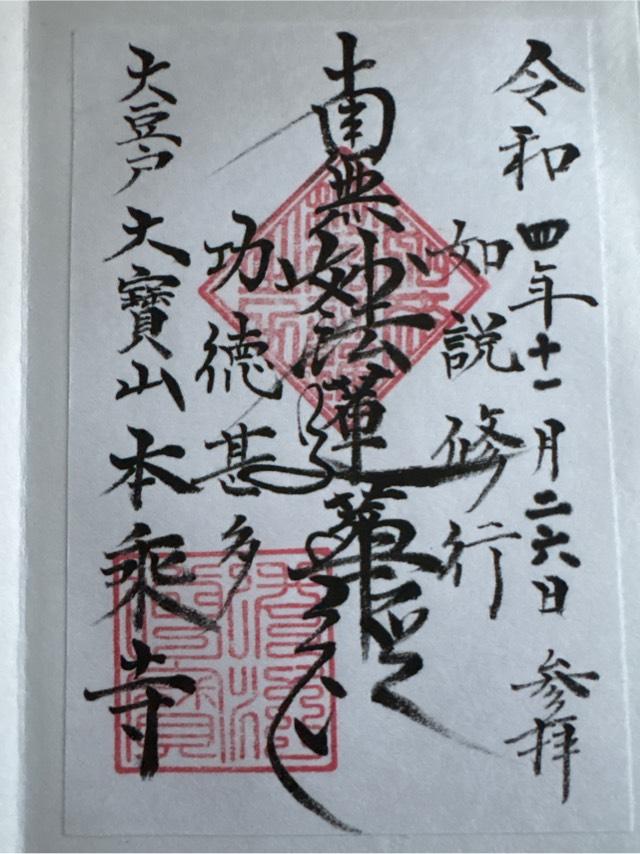 令和四年十一月二六日 参拝
如説修行
南無妙法蓮華経
功徳甚多
大豆戸 大寶山 本乘寺